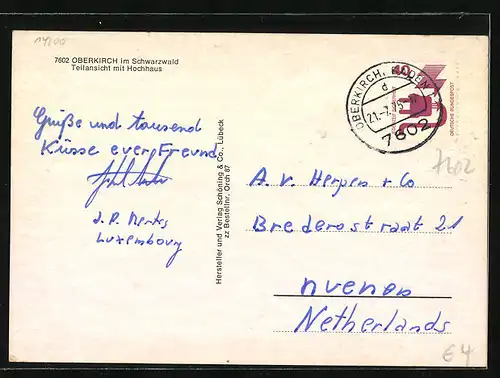 14200
7602 OBERKIRCH im Schwarzwald
Teilansicht mit Hochhaus
Grüße und tausend
Küsse euer Freund
J. P.
Luxembourg
Hersteller und Verlag Schöning & Co., Lübeck
zz Bestellnr. Orch 87
OBERKIRCH, BADEN
d
21.-7.75
7602
40
DEUTSCHE BUNDESPOST
7602
A. v. Herpen & Co
Brederostraat 21
Netherlands
€4